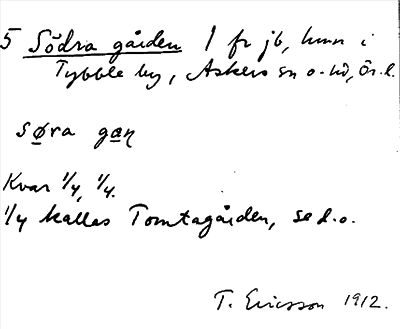 5 Södra gården 1 fr jb, hmn i
Tybble by, Askers sn o. hd, Ör. l.
søra gaɳ
Kvar 1/4, 1/4.
1/4 kallas Tomtagården, se d. o.
T. Ericsson 1912.